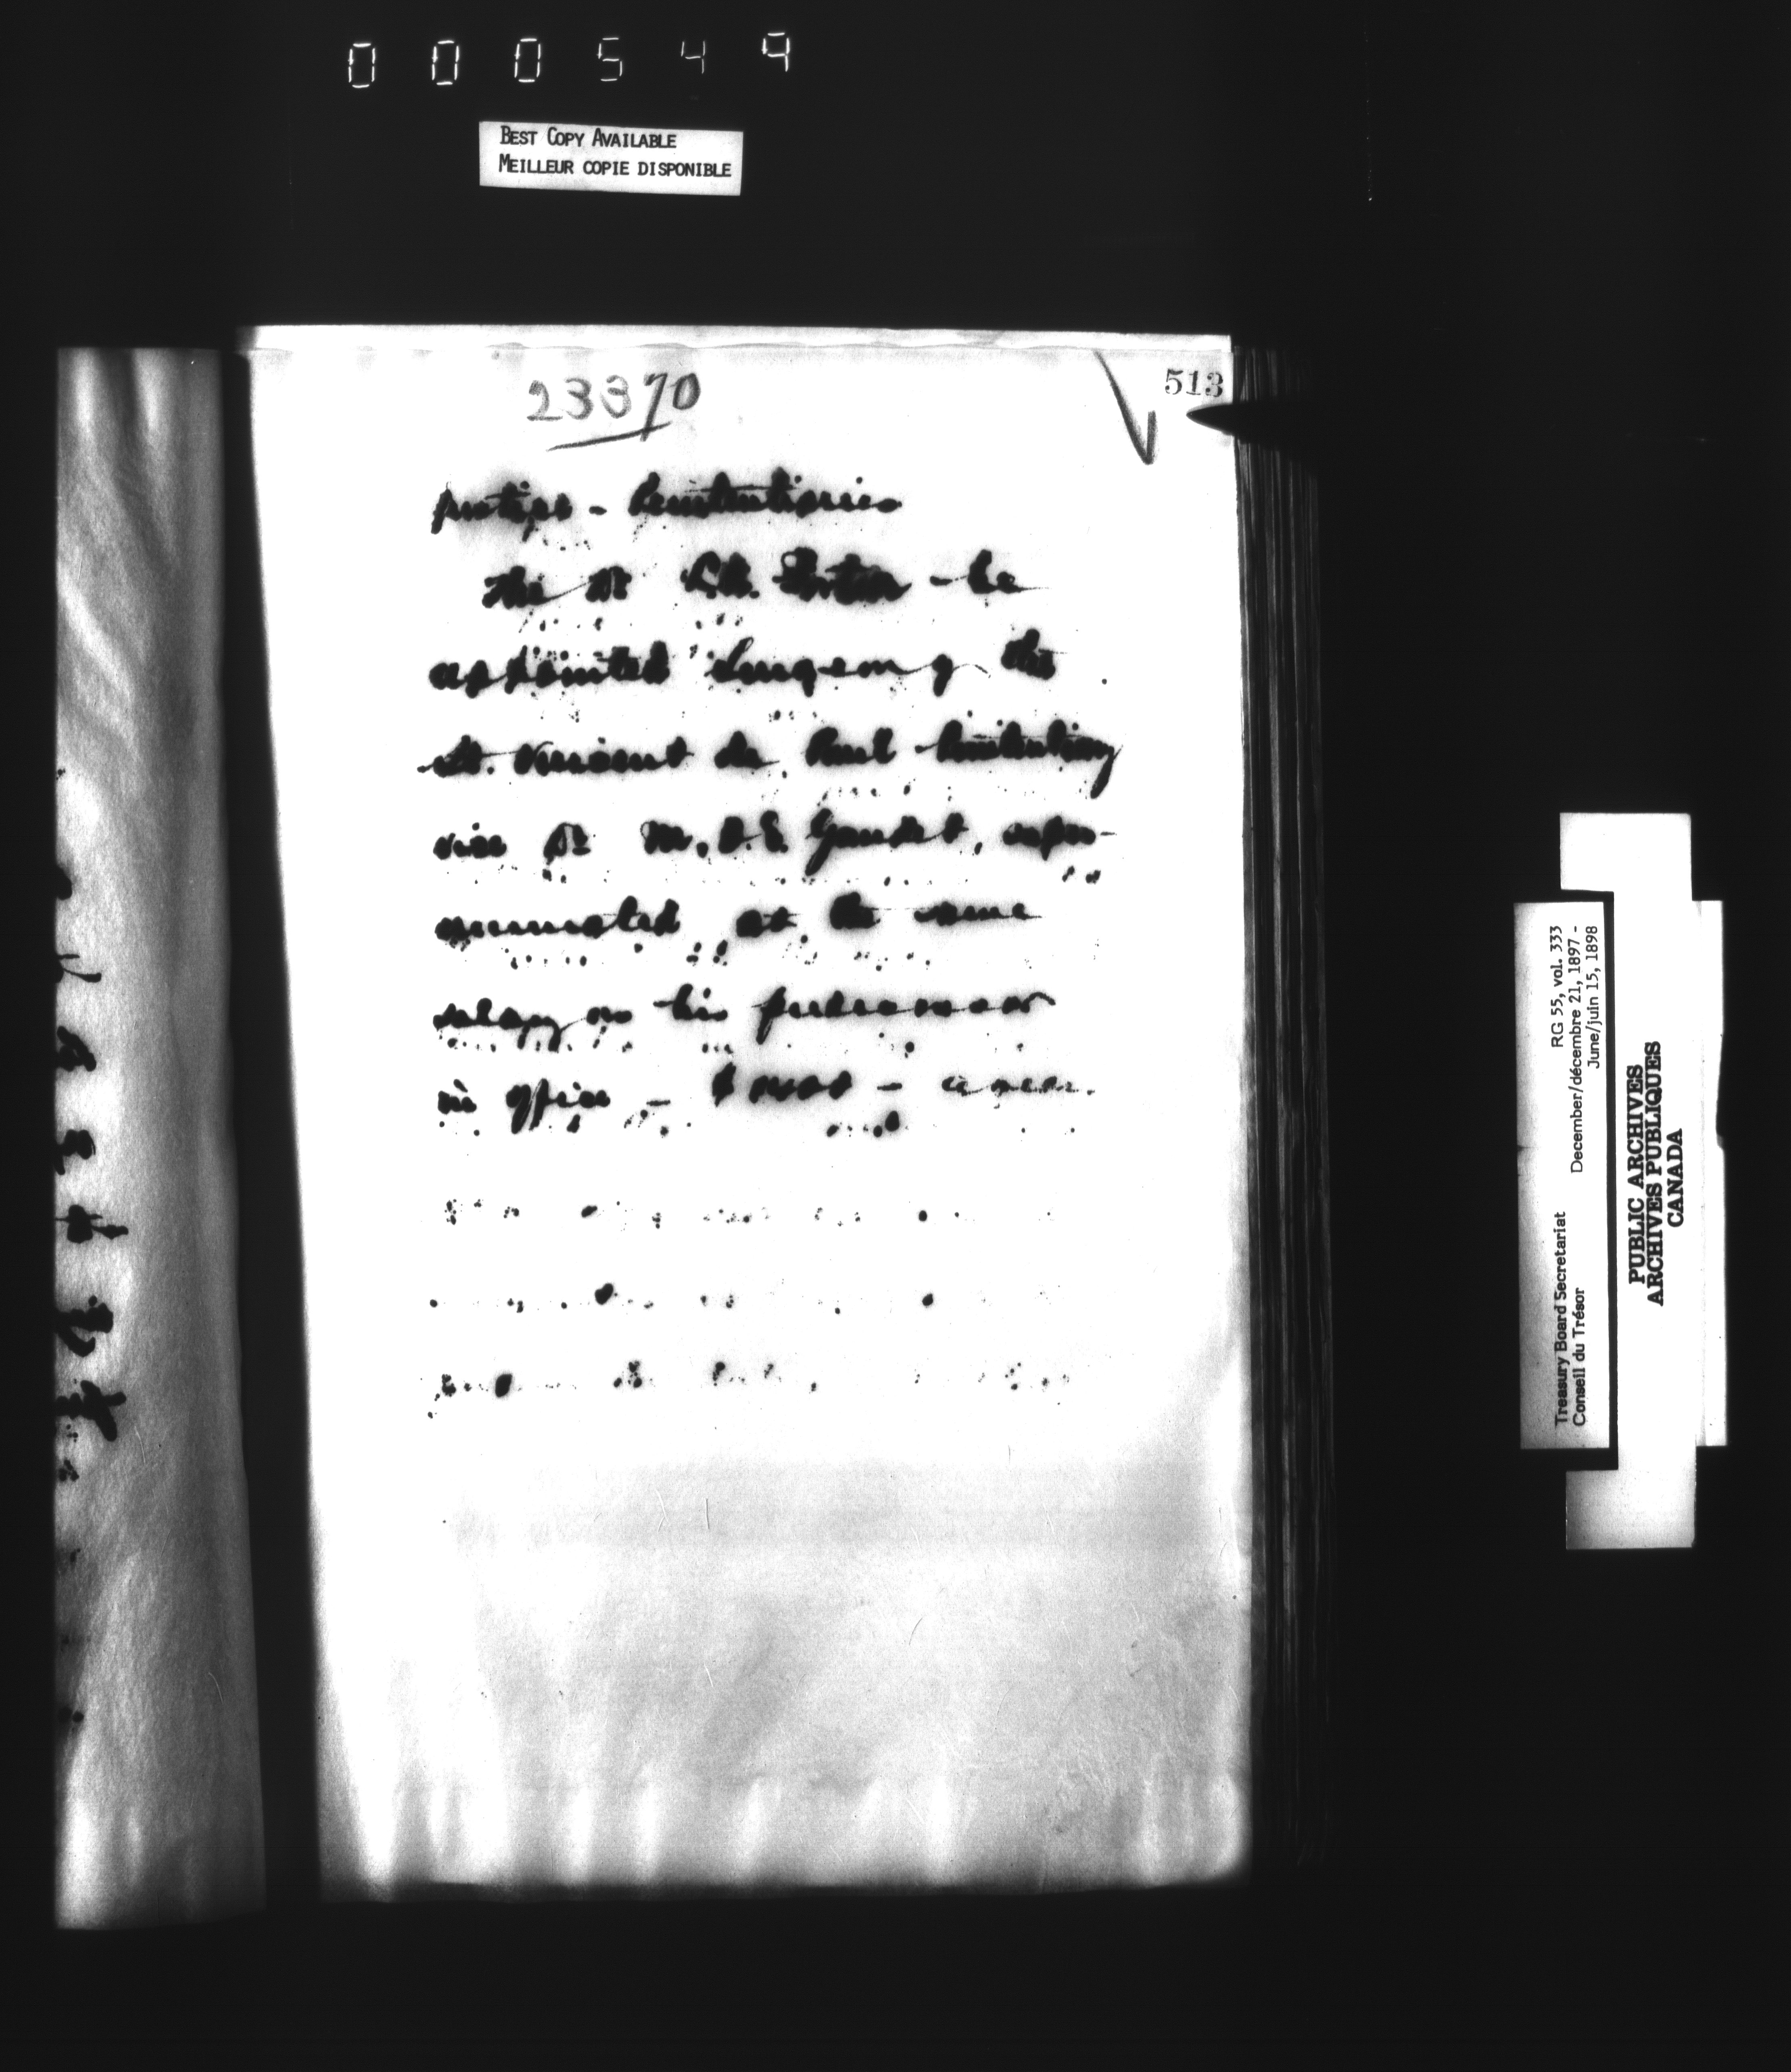 000549
BEST COPY AVAILABLE
MEILLEUR COPIE DISPONIBLE
23370
513
Justice - Penitentiaries
that Dr L.A. Fortier - be
appointed Surgeon of the
St. Vincent de Paul Penitentiary
vice Dr M. D. E. Gaudet, super-
annuated, at the same
salary as his predecessor
in office - a year.
RG 55, vol. 333
Treasury Board Secretariat December/décembre 21, 1897 -
Conseil du Trésor June/juin 15, 1898
PUBLIC ARCHIVES
ARCHIVES PUBLIQUES
CANADA